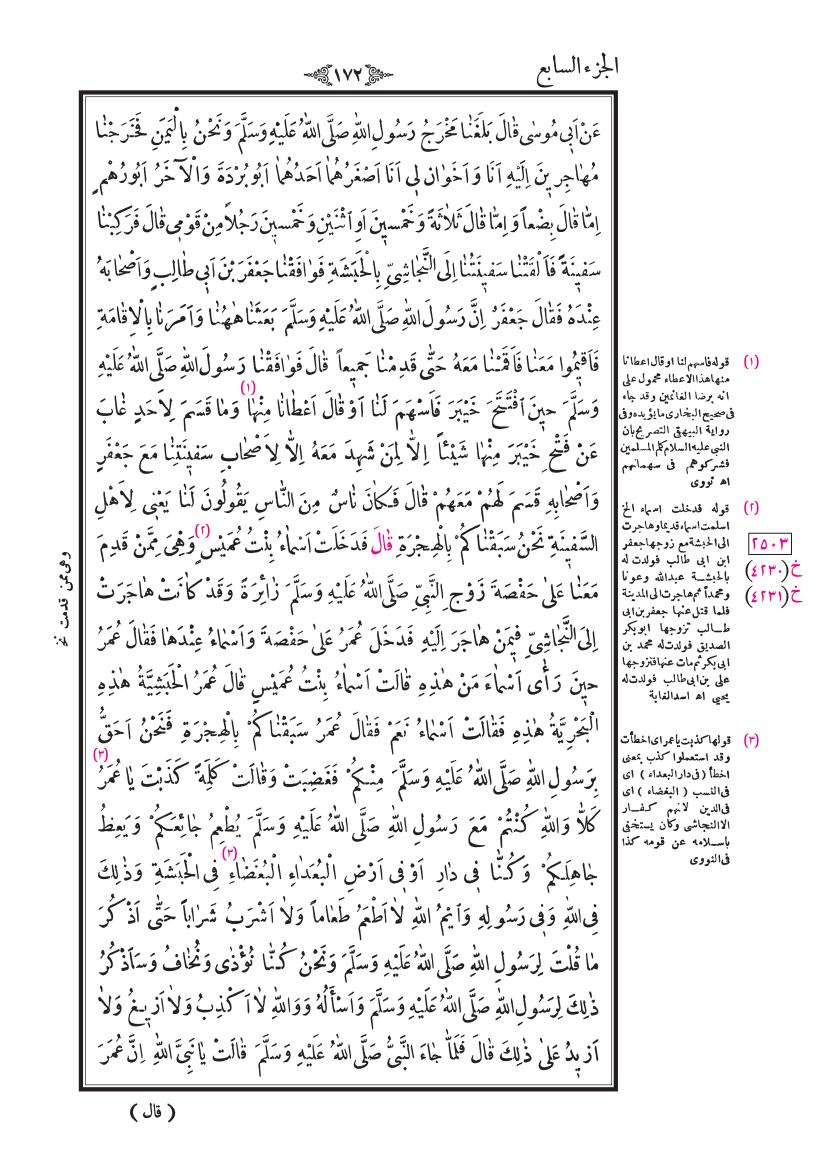 الجزء السابع
١٧٢
عَنْ اَبِي مُوسٰى قَالَ بَلَغَنَا مَخْرَجُ رَسُولِ اللهِ صَلَّى اللهُ عَلَيْهِ وَسَلَّمَ وَنَحْنُ بِالْيَمَنِ فَخَرَجْنَا
مُهَاجِرِينَ اِلَيْهِ اَنَا وَاَخَوَانِ لِي اَنَا اَصْغَرُهُمَا اَحَدُهُمَا اَبُو بُرْدَةَ وَالْآخَرُ اَبُورُهْمٍ
اِمَّا قَالَ بِضْعاً وَاِمَّا قَالَ ثَلَاثَةً وَخَمْسِينَ اَوِ اثْنَيْنِ وَخَمْسِينَ رَجُلاً مِنْ قَوْمِي قَالَ فَرَكِبْنَا
سَفِينَةً فَاَلْقَتْنَا سَفِينَتُنَا اِلَى النَّجَاشِيِّ بِالْحَبَشَةِ فَوَافَقْنَا جَعْفَرَ بْنَ اَبِي طَالِبٍ وَاَصْحَابَهُ
عِنْدَهُ فَقَالَ جَعْفَرٌ اِنَّ رَسُولَ اللهِ صَلَّى اللهُ عَلَيْهِ وَسَلَّمَ بَعَثَنَا هٰهُنَا وَاَمَرَنَا بِالْاِقَامَةِ
فَاَقِيمُوا مَعَنَا فَاَقَمْنَا مَعَهُ حَتّٰى قَدِمْنَا جَمِيعاً قَالَ فَوَافَقْنَا رَسُولَ اللهِ صَلَّى اللهُ عَلَيْهِ
وَسَلَّمَ حِينَ افْتَتَحَ خَيْبَرَ فَاَسْهَمَ لَنَا اَوْ قَالَ اَعْطَانَا مِنْهَا (١) وَمَا قَسَمَ لِاَحَدٍ غَابَ
عَنْ فَتْحِ خَيْبَرَ مِنْهَا شَيْئاً اِلَّا لِمَنْ شَهِدَ مَعَهُ اِلَّا لِاَصْحَابِ سَفِينَتِنَا مَعَ جَعْفَرٍ
وَاَصْحَابِهِ قَسَمَ لَهُمْ مَعَهُمْ قَالَ فَكَانَ نَاسٌ مِنَ النَّاسِ يَقُولُونَ لَنَا يَعْنِي لِاَهْلِ
السَّفِينَةِ نَحْنُ سَبَقْنَاكُمْ بِالْهِجْرَةِ قَالَ فَدَخَلَتْ اَسْمَاءُ بِنْتُ عُمَيْسٍ (٢) وَهِيَ مِمَّنْ قَدِمَ
مَعَنَا عَلٰى حَفْصَةَ زَوْجِ النَّبِيِّ صَلَّى اللهُ عَلَيْهِ وَسَلَّمَ زَائِرَةً وَقَدْ كَانَتْ هَاجَرَتْ
اِلَى النَّجَاشِيِّ فِيمَنْ هَاجَرَ اِلَيْهِ فَدَخَلَ عُمَرُ عَلٰى حَفْصَةَ وَاَسْمَاءُ عِنْدَهَا فَقَالَ عُمَرُ
حِينَ رَأٰى اَسْمَاءَ مَنْ هٰذِهِ قَالَتْ اَسْمَاءُ بِنْتُ عُمَيْسٍ قَالَ عُمَرُ الْحَبَشِيَّةُ هٰذِهِ
الْبَحْرِيَّةُ هٰذِهِ فَقَالَتْ اَسْمَاءُ نَعَمْ فَقَالَ عُمَرُ سَبَقْنَاكُمْ بِالْهِجْرَةِ فَنَحْنُ اَحَقُّ
بِرَسُولِ اللهِ صَلَّى اللهُ عَلَيْهِ وَسَلَّمَ مِنْكُمْ فَغَضِبَتْ وَقَالَتْ كَلِمَةً كَذَبْتَ يَا عُمَرُ (٣)
كَلَّا وَاللهِ كُنْتُمْ مَعَ رَسُولِ اللهِ صَلَّى اللهُ عَلَيْهِ وَسَلَّمَ يُطْعِمُ جَائِعَكُمْ وَيَعِظُ
جَاهِلَكُمْ وَكُنَّا فِي دَارِ اَوْ فِي اَرْضِ الْبُعَدَاءِ الْبُغَضَاءِ (٣) فِي الْحَبَشَةِ وَذٰلِكَ
فِي اللهِ وَفِي رَسُولِهِ وَاَيْمُ اللهِ لَا اَطْعَمُ طَعَاماً وَلَا اَشْرَبُ شَرَاباً حَتّٰى اَذْكُرَ
مَا قُلْتَ لِرَسُولِ اللهِ صَلَّى اللهُ عَلَيْهِ وَسَلَّمَ وَنَحْنُ كُنَّا نُؤْذٰى وَنُخَافُ وَسَاَذْكُرُ
ذٰلِكَ لِرَسُولِ اللهِ صَلَّى اللهُ عَلَيْهِ وَسَلَّمَ وَاَسْأَلُهُ وَوَاللهِ لَا اَكْذِبُ وَلَا اَزِيغُ وَلَا
اَزِيدُ عَلٰى ذٰلِكَ قَالَ فَلَمَّا جَاءَ النَّبِيُّ صَلَّى اللهُ عَلَيْهِ وَسَلَّمَ قَالَتْ يَا نَبِيَّ اللهِ اِنَّ عُمَرَ
( قال )
(١) قوله فاسهم لنا او قال اعطانا
منها هذا الاعطاء محمول على
انه برضا الغانمين وقد جاء
فى صحيح البخارى ما يؤيده وفى
رواية البيهقى التصريح بان
النبى عليه السلام كلم المسلمين
فشركوهم فى سهمانهم
اه نووى
(٢) قوله فدخلت اسماء الخ
اسلمت اسماء قديما وهاجرت
الى الحبشة مع زوجها جعفر
ابن ابى طالب فولدت له
بالحبشة عبدالله وعونا
ومحمداً ثم هاجرت الى المدينة
فلما قتل عنها جعفر بن ابى
طالب تزوجها ابوبكر
الصديق فولدت له محمد بن
ابى بكر ثم مات عنها فتزوجها
على بن ابى طالب فولدت له
يحيى اه اسد الغابة
(٣) قولها كذبت يا عمر اى اخطأت
وقد استعملوا كذب بمعنى
اخطأ ( فى دار البعداء ) اى
فى النسب ( البغضاء ) اى
فى الدين لانهم كفار
الا النجاشى وكان يستخفى
باسلامه عن قومه كذا
فى النووى
٢٥٠٣
خ (٤٢٣٠)
خ (٤٢٣١)
وهى ممن قدمت نخ